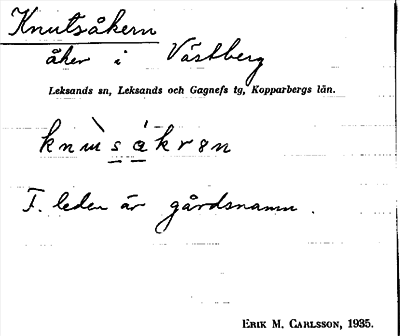 Knutsåkern
åker i Västberg
Leksands sn, Leksands och Gagnefs tg, Kopparbergs län.
F. leden är gårdsnamn.
Erik M. Carlsson, 1935.